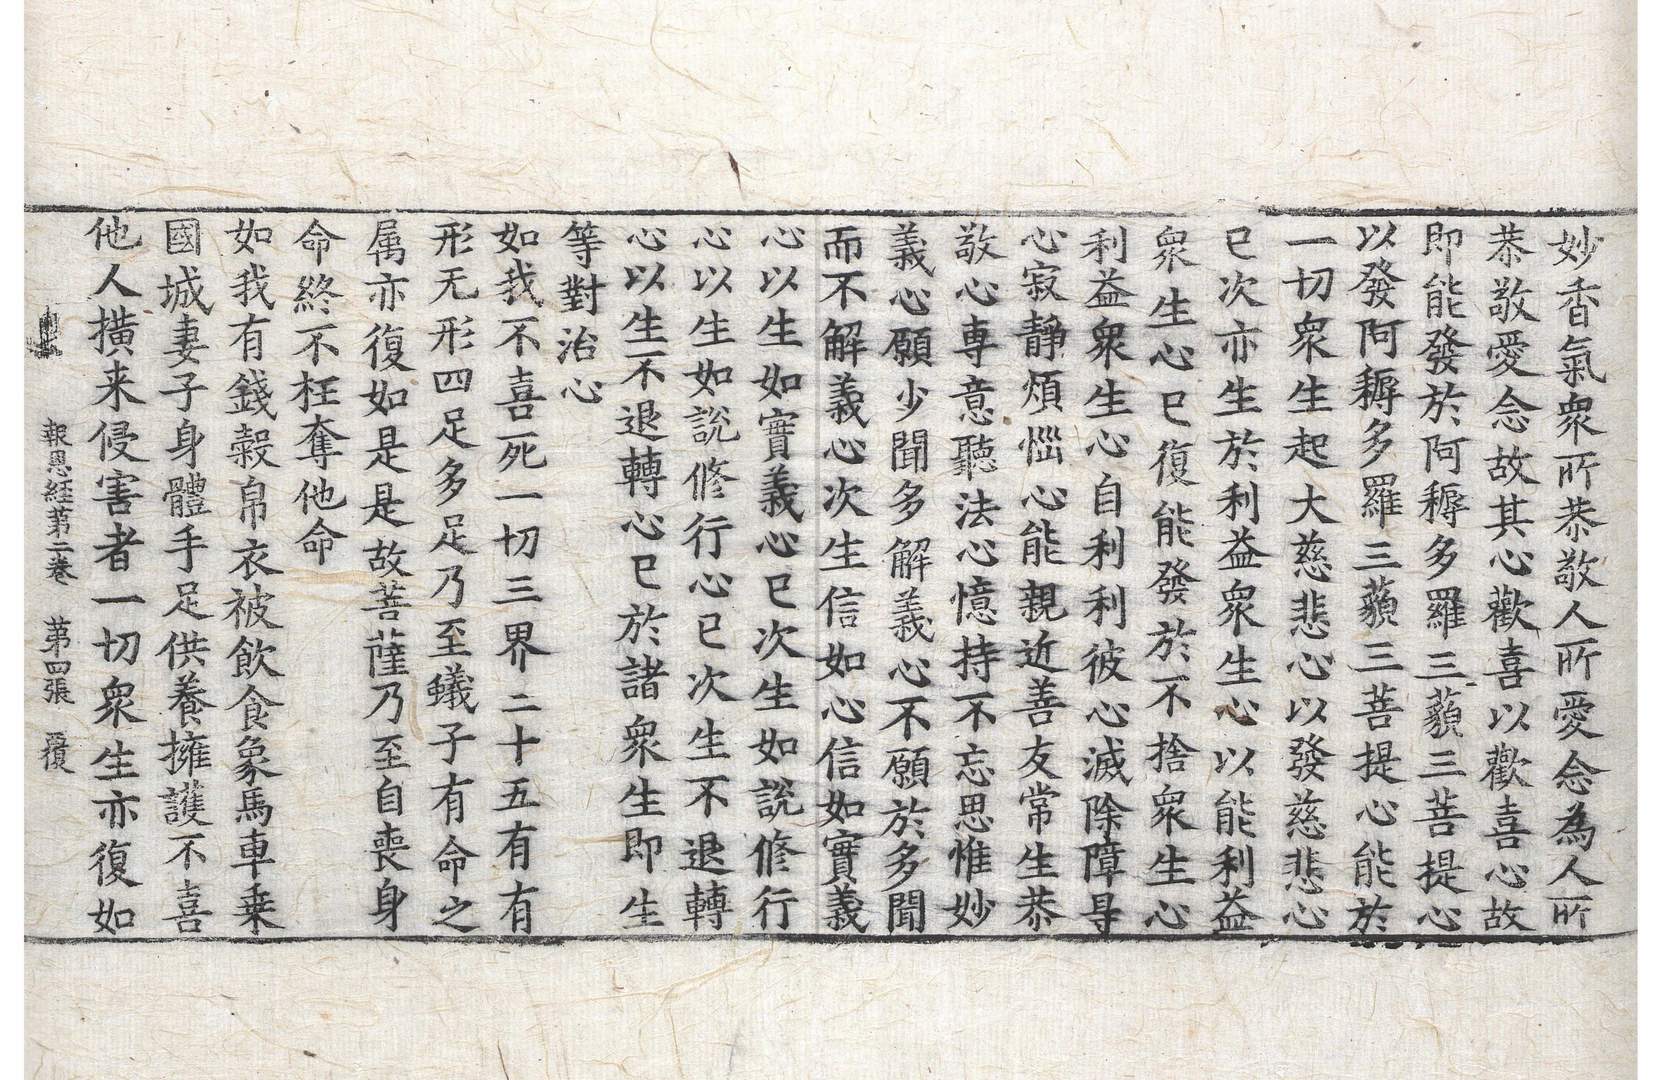 妙香氣衆所恭敬人所愛念為人所
恭敬愛念故其心歡喜以歡喜心故
即能發於阿耨多羅三藐三菩提心
以發阿耨多羅三藐三菩提心能於
一切衆生起大慈悲心以發慈悲心
已次亦生於利益衆生心以能利益
衆生心已復能發於不捨衆生心
利益衆生心自利利彼心滅除障㝵
心寂靜煩惱心能親近善友常生恭
敬心専意聽法心憶持不忘思惟妙
義心願少聞多解義心不願於多聞
而不解義心次生信如心信如實義
心以生如實義心已次生如說修行
心以生如說修行心已次生不退轉
心以生不退轉心已於諸衆生即生
等對治心
如我不喜死一切三界二十五有有
形无形四足多足乃至蟻子有命之
属亦復如是是故菩薩乃至自喪身
命終不枉奪他命
如我有錢穀帛衣被飲食象馬車乗
國城妻子身體手足供養擁護不喜
他人撗来侵害者一切衆生亦復如
報恩経苐二巻　苐四張　覆